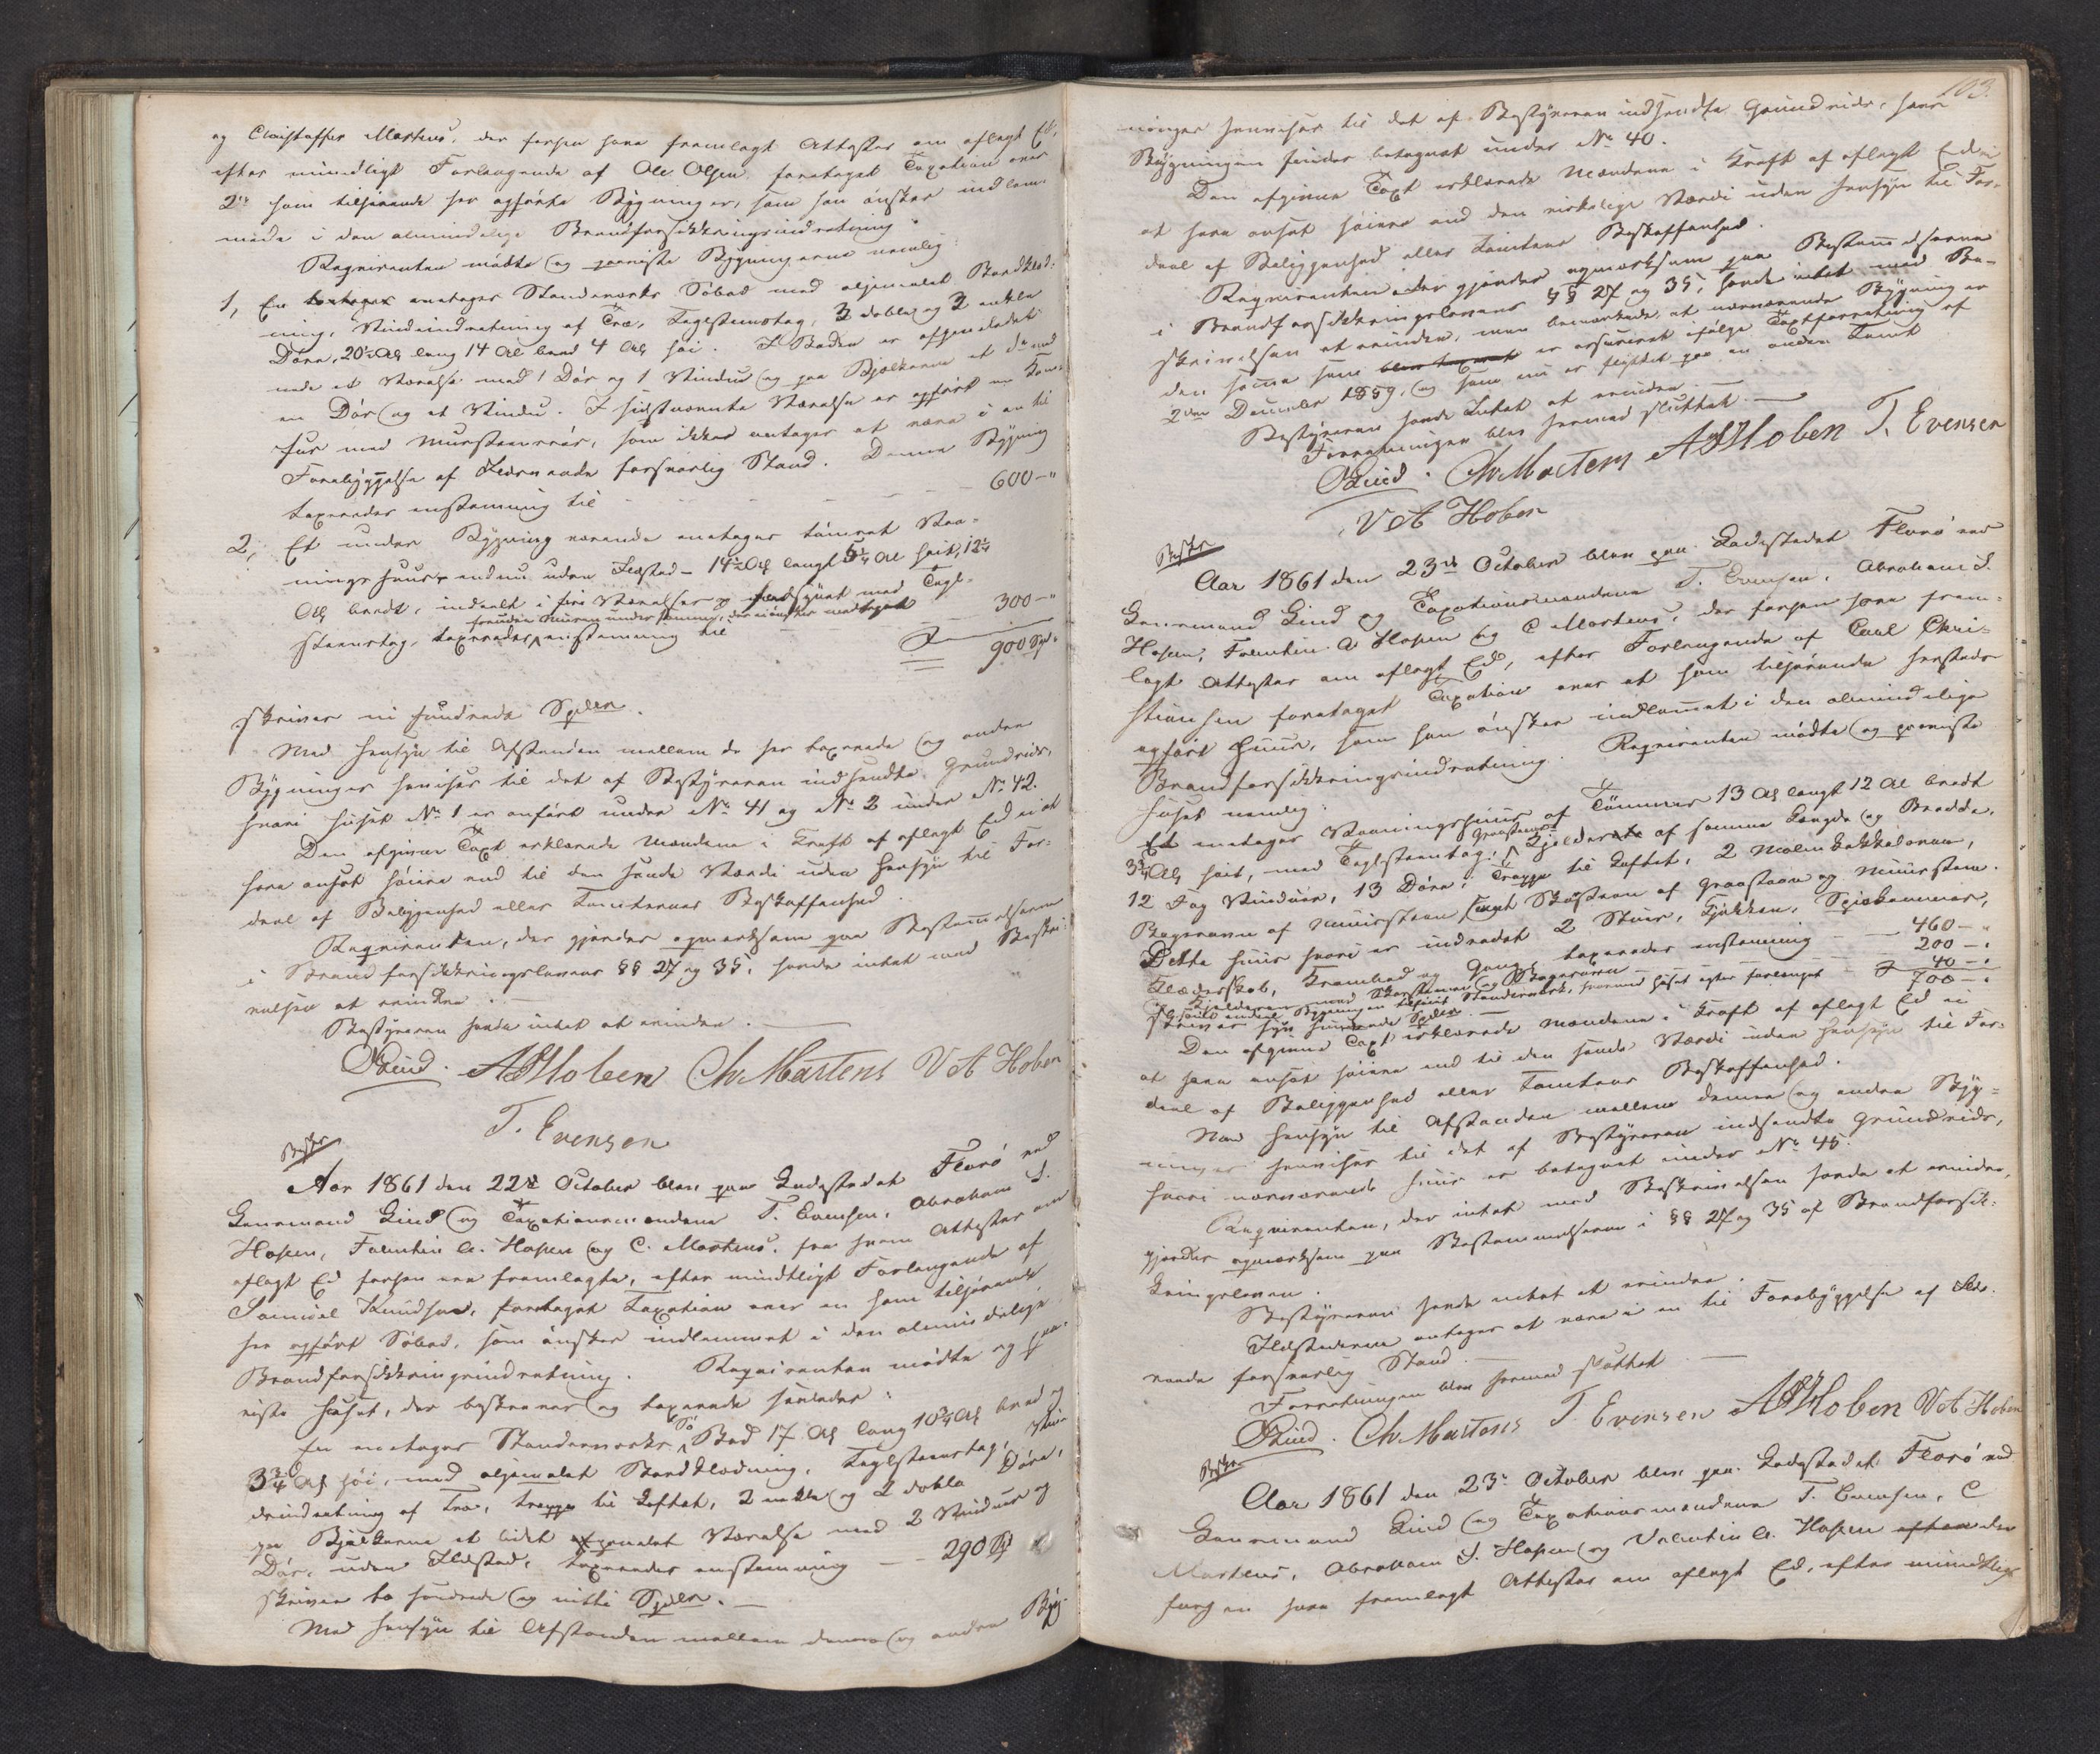 og Christoffer Martens, der forhen have fremlagt Attester om aflagt Ed,
efter mundtligt Forlangende af Ole Olsen foretaget Taxation over
2de ham tilhørende her opførte Bygninger, som han ønsker indlem-
mede i den almindelige Brandforsikkringsindretning.
Requirenten mødte og paaviste Bygningerne nemlig:
1, En een etages Standværks Søbod med oljemalet Bordklæd-
ning, Vindeindretning af Træ, Teglsteenstag, 3 doble og 2 enkle
Døre, 20½ Al lang 14 Al bred 4 Al høi. I Boden er afpanelet
nede et Værelse med 1 Dør og 1 Vindue og paa Bjelkerne et do med
en Dør og et Vindue. I sidstnævnte Værelse er opført en Kom-
fur med Muursteensrør, som ikke antages at være i en til
Forebyggelse af Ildsvaade forsvarlig Stand. Denne Bygning
taxeredes enstemmig til - - - - 600 - "
2, Et under Bygning værende eenetages tømret Vaa-
ningshuus endnu uden Ildsted - 14½ Al langt 5¼ Al høit, 12¼
Al bredt, inddeelt i fire Værelser og forsynet med Tegl-
foruden Muren under samme, der ei ønskes medtaget
steenstag, taxeredes enstemmig til - 300 - "
900 Spd "
skriver ni hundrede Spdlr.
Med Hensyn til Afstanden mellem de her taxerede og andre
Bygninger henvises til det af Bestyreren indsendte Grundrids,
hvori Huset No 1 er anført under No 41 og No 2 under No 42.
Den afgivne Taxt erklærede Mændene i Kraft af aflagt Ed ei at
have ansat høiere end til den sande Værdi uden Hensyn til For-
deel af Beliggenhed eller Tomternes Beskaffenhed.
Requirenten, der gjordes opmærksom paa Bestemmelserne
i Brandforsikkringslovens §§ 27 og 35, havde intet med Beskri-
velsen at erindre. -
Bestyreren havde intet at erindre. -
Lind. A S Hoben Ch Martens V A Hoben
T. Evensen
Aar 1861 den 22de October blev paa Ladestedet Florø ved
Lensmand Lind og Taxationsmændene T. Evensen, Abraham S.
Hopen, Falentin A. Hopen og C. Martens, fra hvem Attester om
aflagt Ed forhen ere fremlagte, efter mundtligt Forlangende af
Samuel Knudsen, foretaget Taxation over en ham tilhørende
her opført Søbod, som ønskes indlemmet i den almindelige
Brandforsikkringsindretning. Requirenten mødte og paa-
viste Huset, der beskreves og taxerede saaledes:
En eenetages Standværks Sø Bod 17 Al lang 10¾ Al bred og
3¾ Al høi, med oljemalet Bordklædning, Teglsteenstag, Vin-
deindretning af Træ, Trappe til Loftet, 2 enkle og 2 doble Døre,
paa Bjelkerne et lidet afpanelet Værelse med 2 Vinduer og
Dør, uden Ildsted, taxeredes enstemmig - - 290 Spd
skriver to hundrede og nitti Spdlr. -
Med Hensyn til Afstanden mellem denne og andre Byg-
103.
ninger henvises til det af Bestyreren indsendte Grundrids, hvori
Bygningen findes betegnet under No 40.
Den afgivne Taxt erklærede Mændene i Kraft af aflagt Ed ei
at have ansat høiere end den virkelige Værdi uden Hensyn til For-
deel af Beliggenhed eller Tomtens Beskaffenhed.
Requirenten, der gjordes opmærksom paa Bestemmelserne
i Brandforsikkringslovens §§ 27 og 35, havde intet med Be-
skrivelsen at erindre, men bemærkede, at nærværende Bygning er
den samme som er assureret ifølge Taxtforretning af
2den December 1859, og som nu er flyttet paa en anden Tomt
Bestyreren havde Intet at erindre. -
Forretningen blev hermed sluttet. -
Lind. Ch Martens A S Hoben T. Evensen
V A Hoben
Aar 1861 den 23de October blev paa Ladestedet Florø ved
Lensmand Lind og Taxationsmændene T. Evensen, Abraham S.
Hopen, Falentin A Hopen og C Martens, der forhen have frem-
lagt Attester om aflagt Ed, efter Forlangende af Carl Chri-
stiansen foretaget Taxation over et ham tilhørende hersteds
opført Huus, som han ønsker indlemmet i den almindelige
Brandforsikkringsindretning. Requirenten mødte og paaviste
Huset nemlig:
Et eenetages Vaaningshuus af Tømmer 13 Al langt 12 Al bredt
3¾ Al høit, med Teglsteenstag, Graasteens Kjelder af samme Længde og Bredde,
12 Fag Vinduer, 13 Døre, Trappe til Loftet, 2 Malm Kakkelovne,
Bagerovn af Muursteen samt Skorsteen af Graasteen og Muursteen.
Dette Huus hvori er indredet 2 Stuer, Kjøkken, Spisekammer,
Klædeskab, Krambod og Gang, taxeredes enstemmig - - 460 - "
Kjelderen med Skorstenen og Bagerovn - 200 - "
Standværk, hvormed Huset agtes forlænget - 40 - "
700 - "
skriver syv hundrede Spdlr.
Den afgivne Taxt erklærede Mændene i Kraft af aflagt Ed ei
at have ansat høiere end til den sande Værdi uden Hensyn til For-
deel af Beliggenhed eller Tomtens Beskaffenhed.
Med Hensyn til Afstanden mellem denne og andre Byg-
ninger henvises til det af Bestyreren indsendte Grundrids,
hvori nærværende Huus er betegnet under No 45.
Requirenten, der intet med Beskrivelsen havde at erindre,
gjordes opmærksom paa Bestemmelserne i §§ 27 og 35 af Brandforsik-
kringsloven.
Bestyreren havde intet at erindre.
Ildstederne antages at være i en til Forebyggelse af Ilds-
vaade forsvarlig Stand. -
Forretningen blev hermed sluttet. -
Lind. Ch Martens T. Evensen A S Hoben V A Hoben
Aar 1861 den 23de October blev paa Ladestedet Florø ved
Lensmand Lind og Taxationsmændene T. Evensen, C
Martens, Abraham S. Hopen og Valentin A. Hopen efter der
forhen have fremlagt Attester om aflagt Ed, efter mundtligt